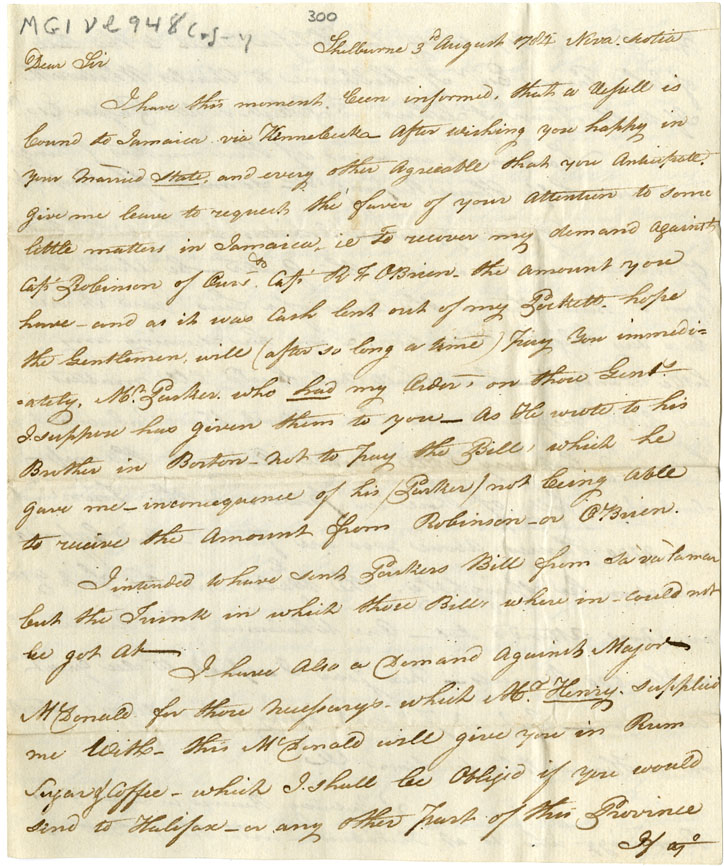 MG1 vol 948
300
Shelburne 3d August 1784 Nova Scotia
Dear Sir
I have this moment been informed, that a Vessell is
bound to Jamaica via Kennebecka After wishing you happy in
your Married State, and every other Agreeable that you Anticipate.
give me leave to request the favor of your Attention to some
little matters in Jamaica, ie To recover my demand against
Capt Robinson of Ours, & Capt R F OBrien - the amount you
have - and as it was Cash lent out of my Pockett - hope
the Gentlemen, will (after so long a time) Pay You immedi-
-ately, Mr Parker. who had my Order, on those Gents
I suppose has given them to you - As He wrote to his
Brother in Boston - not to Pay the Bill, which he
gave me - inconcequence of his (Parker) not being Able
to receive the Amount from Robinson - or OBrien.
I intended to have sent Parkers Bill from
but the Trunk in which those Bills where in - could not
be got At -
I have Also a Demand Against Major
McDonald for those Necessarys - which Mr Henry. supplied
me With - this McDonald will give you in Rum
Sugar & Coffee - which I shall be Obligd if you would
send to Halifax - or any other Part of this Province
If